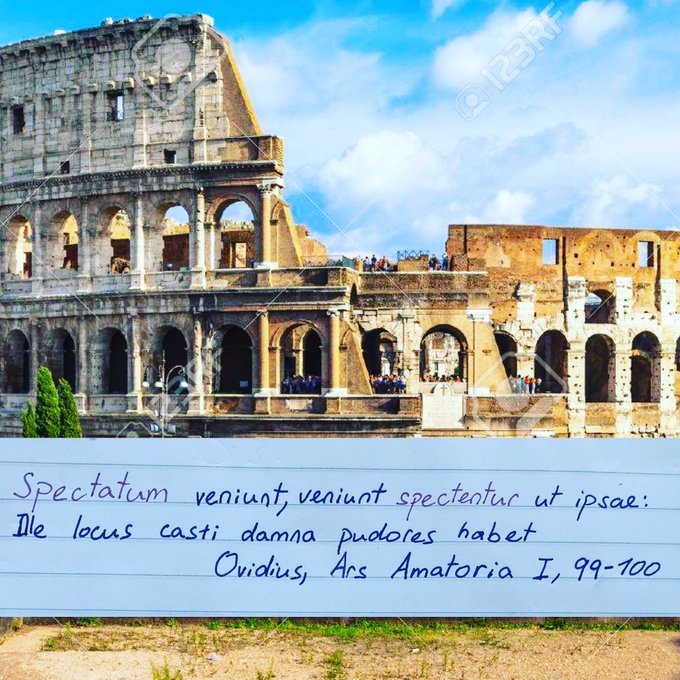 123RF
Spectatum veniunt, veniunt spectentur ut ipsae:
Ille locus casti damna pudores habet
Ovidius, Ars Amatoria I, 99-100